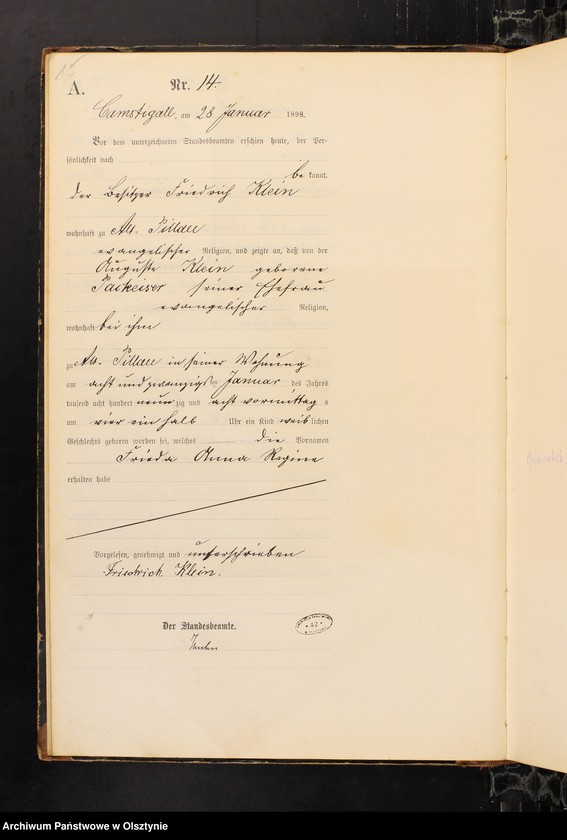 15
A.
Nr. 14.
Camstigall, am 28 Januar 1898.
Vor dem unterzeichneten Standesbeamten erschien heute, der Per-
sönlichkeit nach
be kannt,
der Besitzer Friedrich Klein
wohnhaft zu Alt-Pillau
evangelischer Religion, und zeigte an, daß von der
Auguste Klein geborene
seiner Ehefrau
evangelischer Religion,
wohnhaft bei ihm
zu Alt-Pillau in seiner Wohnung
am acht und zwanzigsten Januar des Jahres
tausend acht hundert neun zig und acht vormittag s
um vier ein halb Uhr ein Kind weib lichen
Geschlechts geboren worden sei, welches die Vornamen
Frieda Anna Regine
erhalten habe
Vorgelesen, genehmigt und unterschrieben
Friedrich Klein.
Der Standesbeamte.
Archiwum Państwowe w Olsztynie